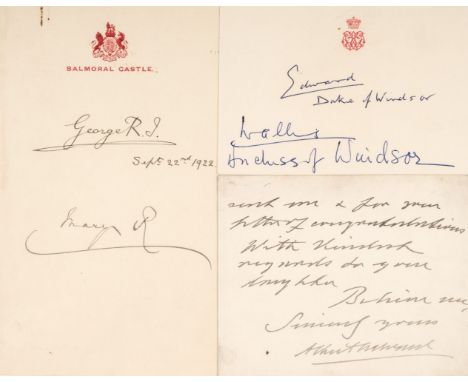 BALMORAL CASTLE.
George R.I.
Sept 22nd 1922
Mary R
Edward
Duke of Windsor
Wallis
Duchess of Windsor
and for your
letter of congratulations
With kindest
regards to your
daughter
Believe me
Sincerely yours